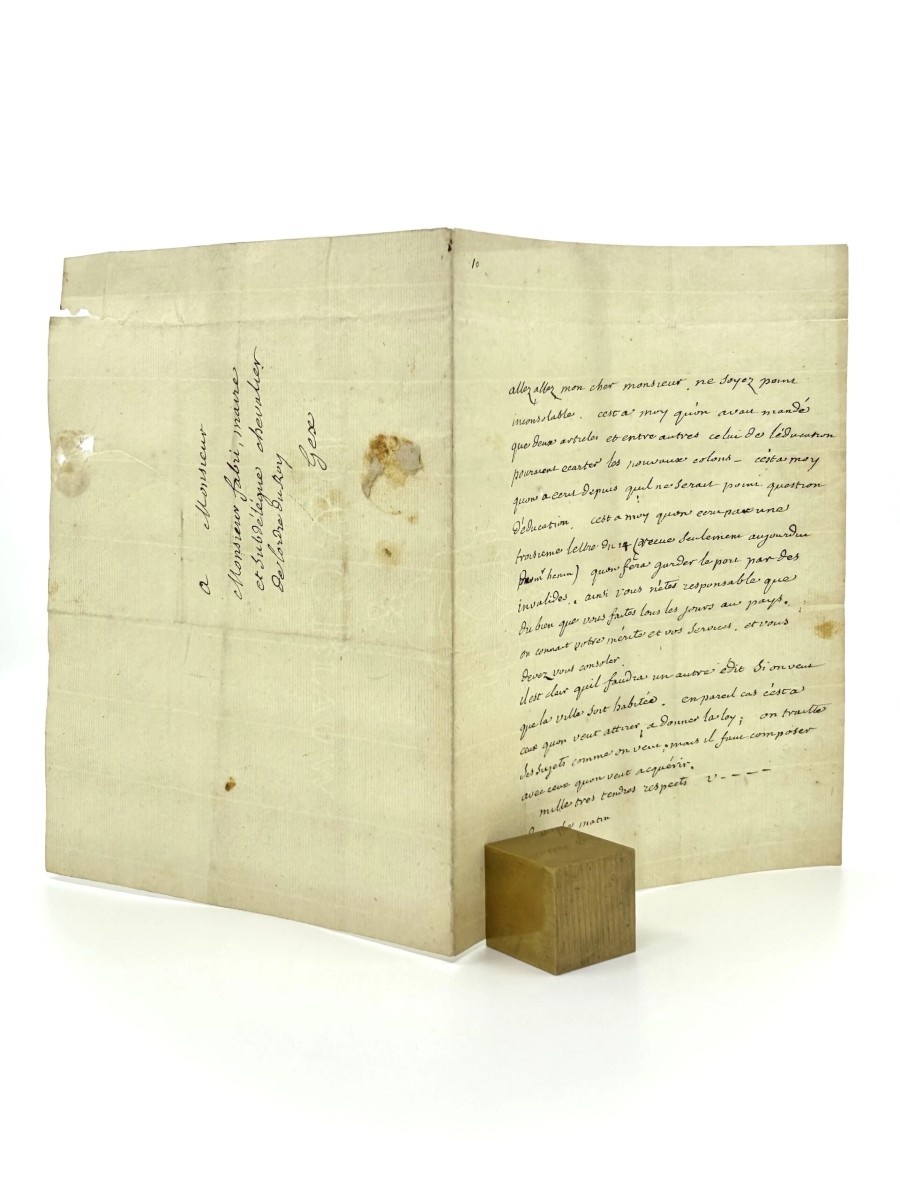 a Monsieur
Monsieur fabri, maire
et subdélégué chevalier
de lordre du Roy
Gex
10
allez allez mon cher monsieur. ne soyez point
inconsolable. cest a moy qu'on avait mandé
que deux articles et entre autres celui de l'éducation
pouraient ecarter les nouvaux colons - c'ést a moy
quon a ecrit depuis quil ne serait point question
d'éducation. cest a moy quon ecrit par une
troisieme lettre du 14 (recue seulement aujourdui
mr henin) quon fera garder le port par des
invalides. ainsi vous n'étes responsable que
du bien que vous faites tous les jours au pays.
on connait votre mérite et vos services. et vous
devez vous consoler.
il est clair quil faudra un autre édit si on veut
que la ville soit habitée. en pareil cas c'ést a
ceux quon veut attirer, a donner la loy; on traitte
ses sujets comme on veut, mais il faut composer
avec ceux quon veut acquérir.
mille tres tendres respects V - - - -
matin